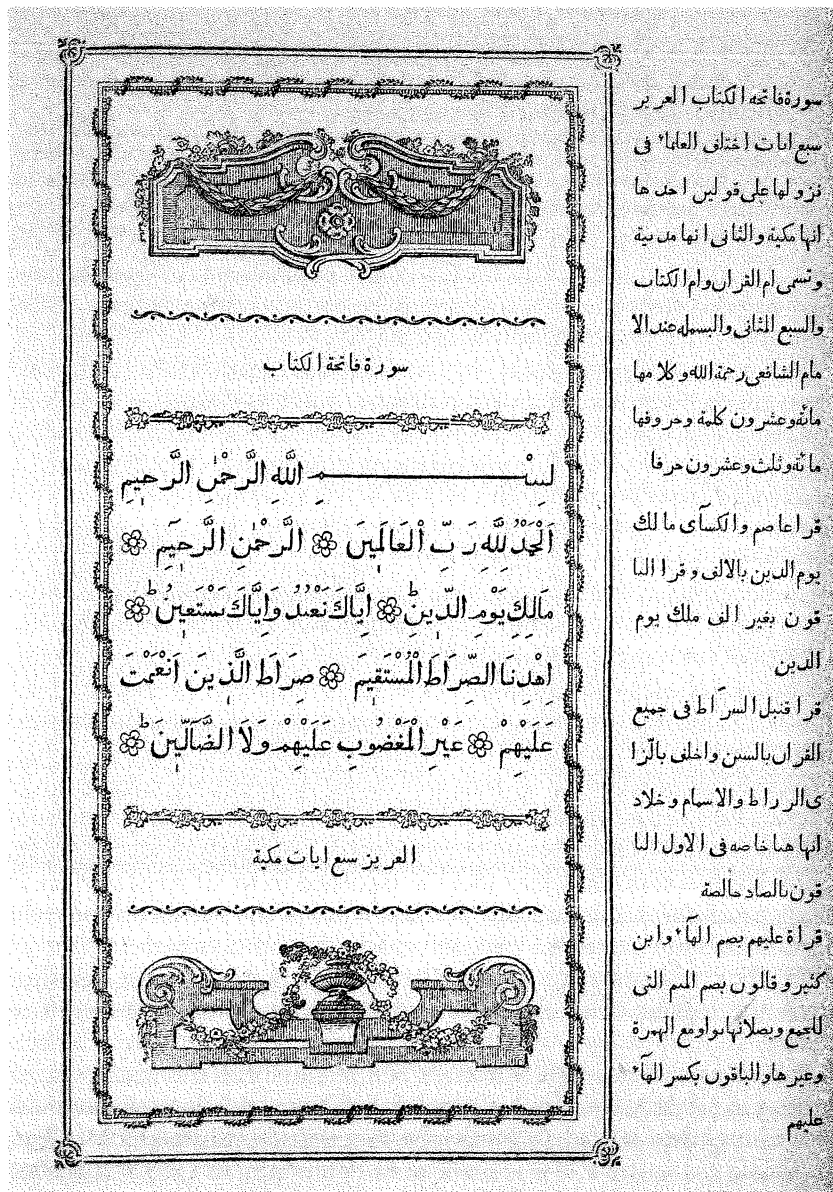 سورة فاتحة الكتاب
بِسْــــــمِ اللّٰهِ الرَّحْمٰنِ الرَّحِيمِ
اَلْحَمْدُ لِلّٰهِ رَبِّ الْعَالَمِينَ ۞ الرَّحْمٰنِ الرَّحِيمِ ۞
مَالِكِ يَوْمِ الدِّينِ ط ۞ اِيَّاكَ نَعْبُدُ وَاِيَّاكَ نَسْتَعِينُ ط ۞
اِهْدِنَا الصِّرَاطَ الْمُسْتَقِيمَ ۞ صِرَاطَ الَّذِينَ اَنْعَمْتَ
عَلَيْهِمْ ۞ غَيْرِ الْمَغْضُوبِ عَلَيْهِمْ وَلَا الضَّالِّينَ ط ۞
العريز سبع ايات مكية
سورة فاتحه الكتاب العرير
سبع ايات اختلف العلماء فى
نزولها على قولين احدها
انها مكية والثانى انها مدنية
وتسمى ام القران وام الكتاب
والسبع المثانى والبسمله عند الا
مام الشافعى رحمة الله وكلامها
مائه وعشرون كلمة وحروفها
مائة وثلث وعشرون حرفا
قرا عاصم والكسآى مالك
يوم الدين بالالف وقرا البا
قون بغير الف ملك يوم
الدين
قرا قنبل السراط فى جميع
القران بالسين واخلف بالّزا
ى الرراط والاسمام وخلاد
انها هنا خاصه فى الاول البا
قون بالصاد خالصة
قراة عليهم بصم الهآء وابن
كثير وقالون بصم الميم التى
للجمع وبصلانها بواو مع الهمرة
وعيرها والباقون بكسر الهآء
عليهم